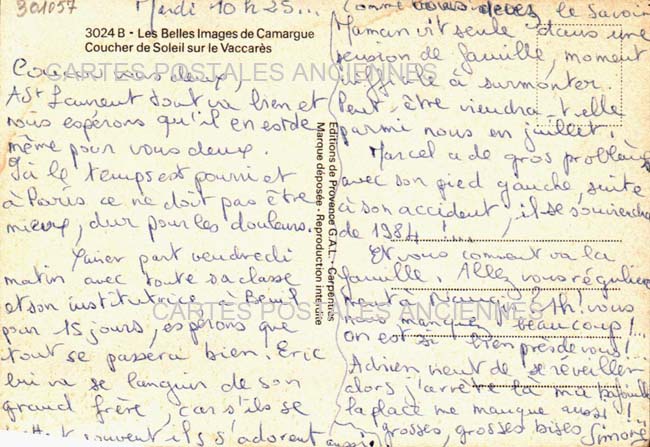 301057
Mardi 10h25...
3024 B - Les Belles Images de Camargue
Coucher de Soleil sur le Vaccarès
CARTES POSTALES ANCIENNES
Coucou vous deux,
A St Laurent tout va bien et
nous espérons qu'il en est de
même pour vous deux.
Ici le temps est pourri et
à Paris ce ne doit pas être
mieux, dur pour les douleurs.
part vendredi
matin avec toute sa classe
et son institutrice à Beuil
pour 15 jours, espérons que
tout se passera bien. Eric
lui va se languir de son
grand frère, car s'ils se
souvent ils s'adorent aussi.
Editions de Provence G.A.L. - Carpentras
Marque déposée - Reproduction interdite
Comme vous devez le savoir
Maman vit seule dans une
pension de famille, moment
difficile à surmonter.
Peut-être viendra-t-elle
parmi nous en juillet.
Marcel a de gros problèmes
avec son pied gauche, suite
à son accident, il se souviendra
de 1984 !...
Et vous comment va la
famille. Allez vous régulière
ment à 21h! vous
nous manquez beaucoup!..
CARTES POSTALES ANCIENNES
on est si bien près de vous!..
Adrien vient de se réveiller
alors j'arrête là ma
la place me manque aussi!
grosses, grosses bises Simone